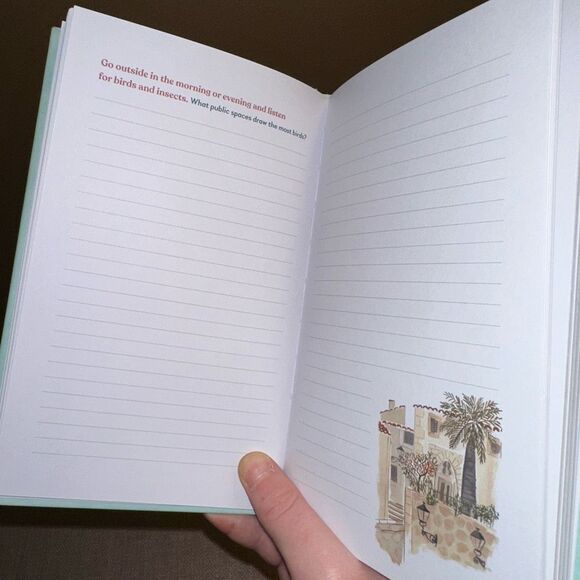 Go outside in the morning or evening and listen
for birds and insects. What public spaces draw the most birds?